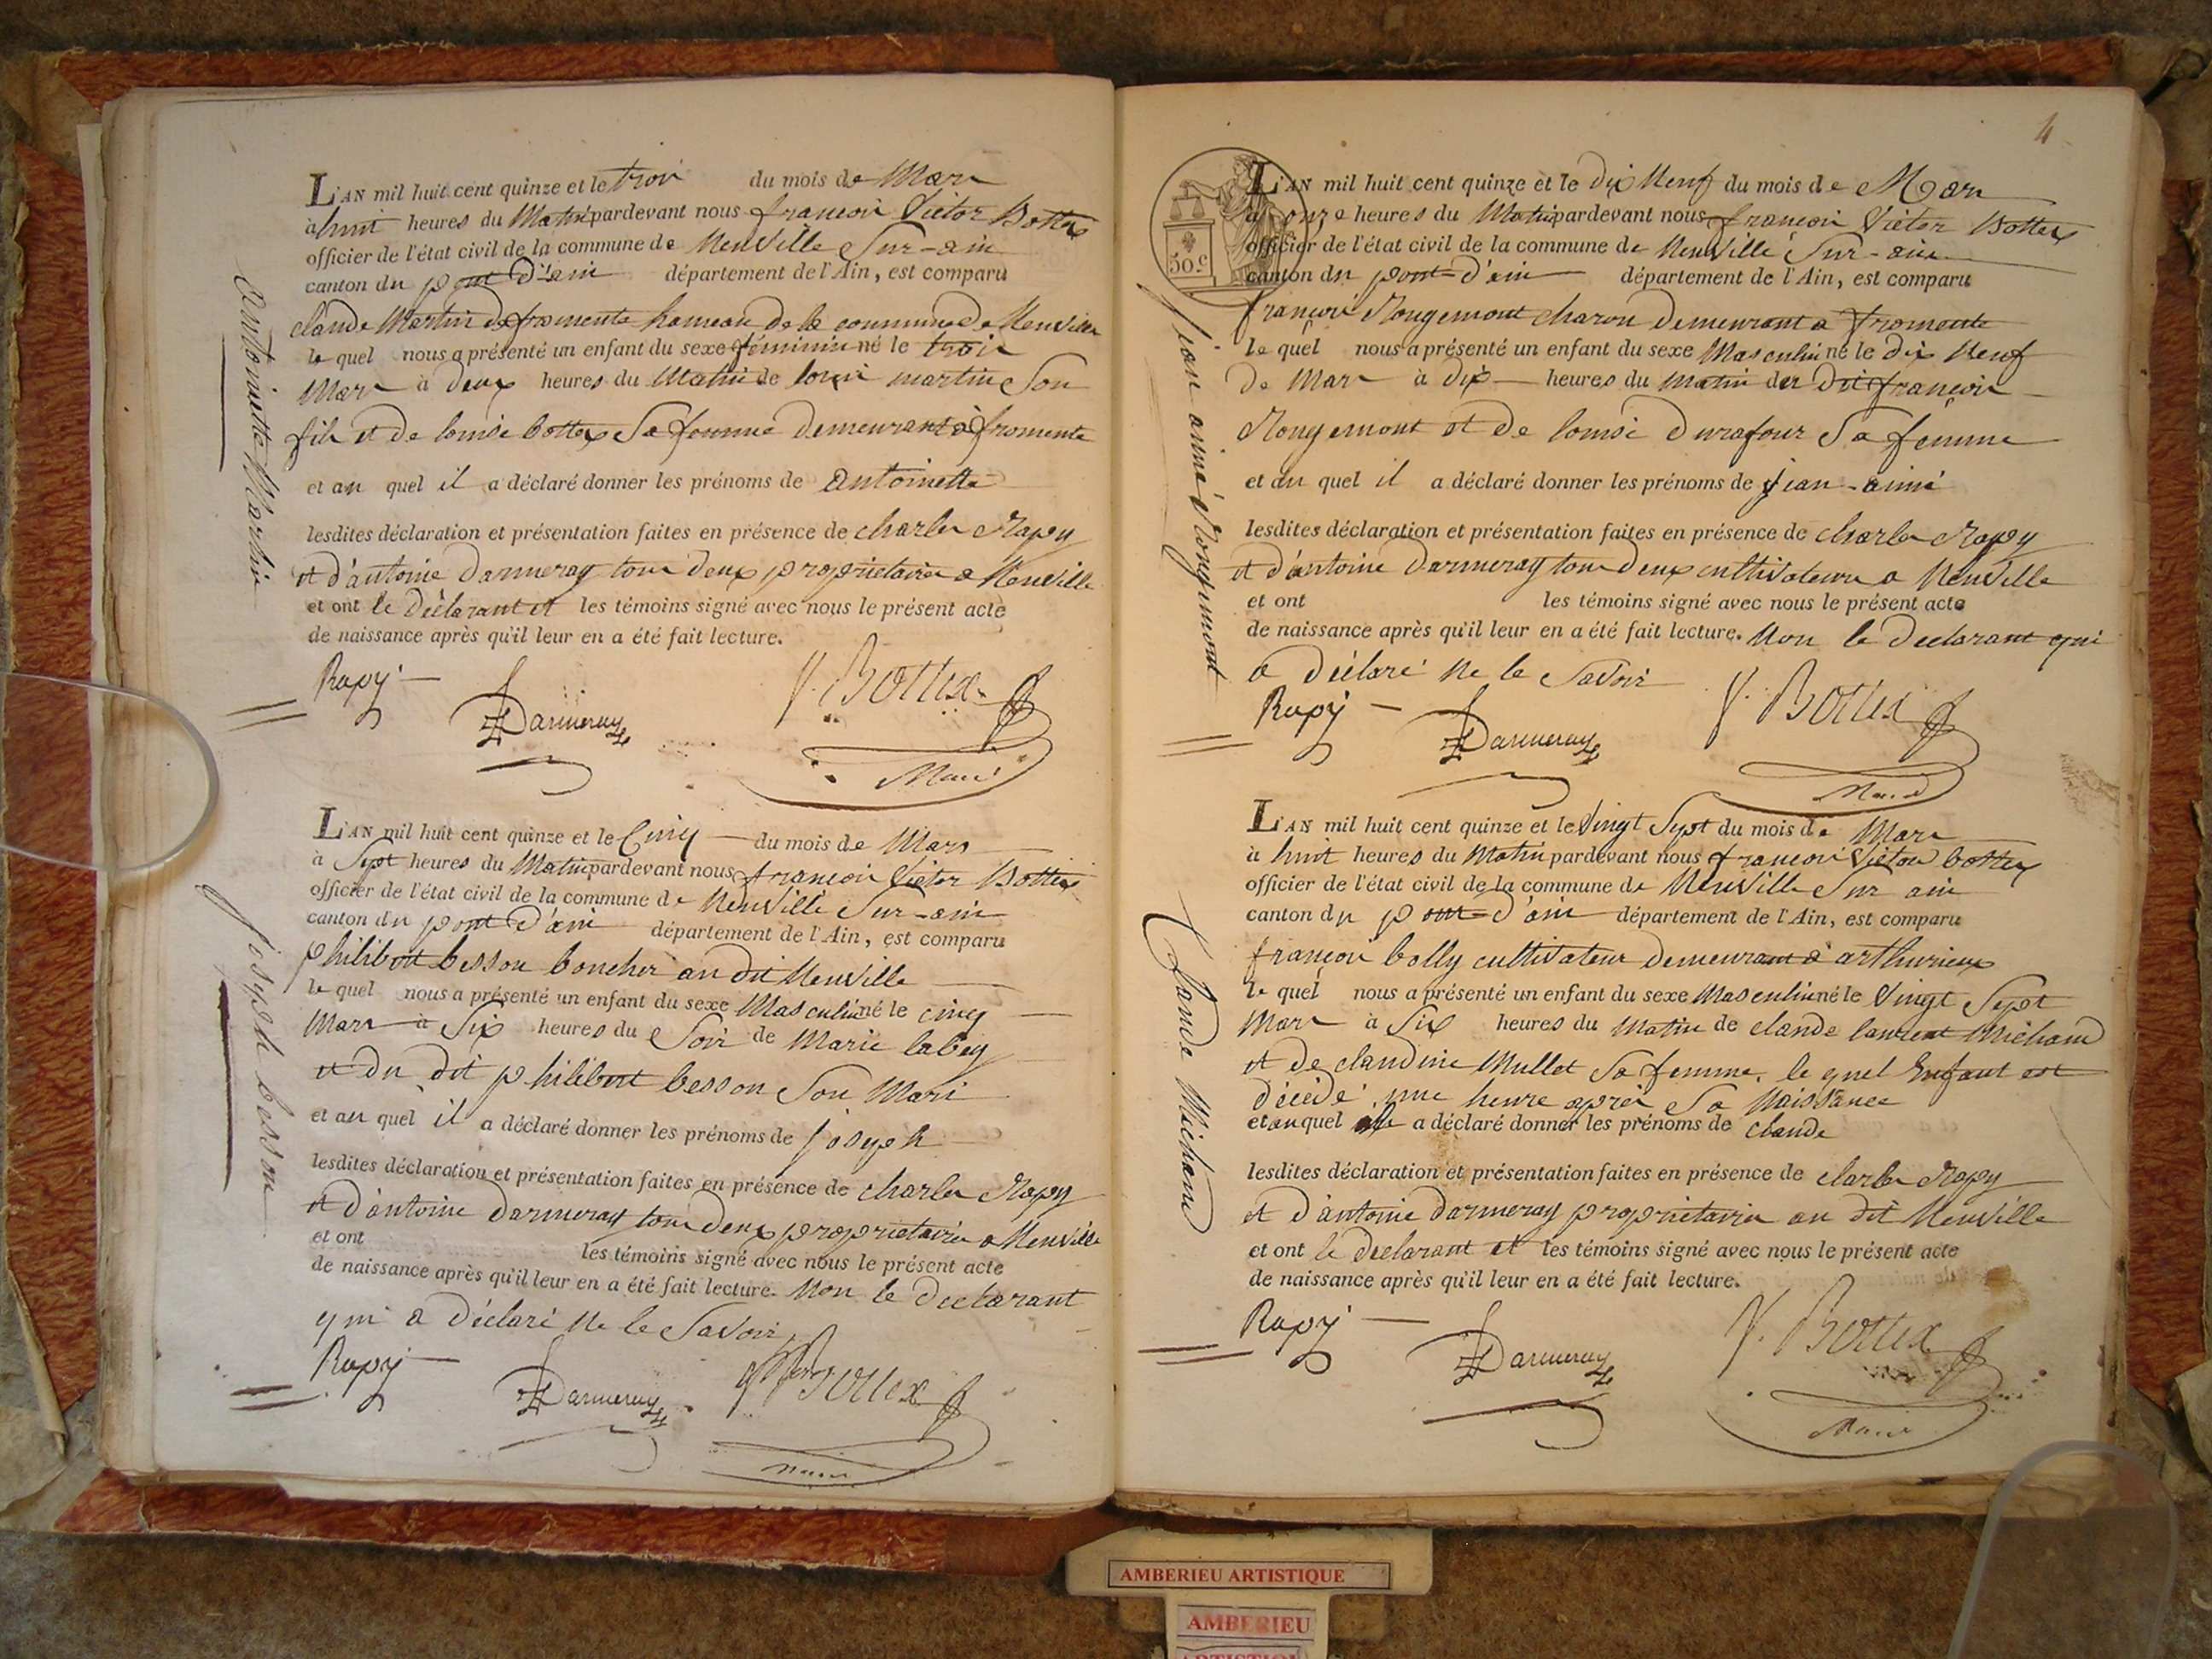 L'AN mil huit cent quinze et le troi du mois de Mars
à huit heures du Matin pardevant nous françois Victor Bottex
officier de l'état civil de la commune de Neuville Sur-ain
canton du pont d'ain département de l'Ain, est comparu
claude Martin de fromente hameau de la commune de Neuville
le quel nous a présenté un enfant du sexe féminin né le troi
Mars à deux heures du Matin de louis martin Son
fils et de louise bottex Sa femme demeurant à fromente
et au quel il a déclaré donner les prénoms de antoinette
lesdites déclaration et présentation faites en présence de charles Rapy
et d'antoine darmeray tous deux proprietaires a Neuville
et ont le déclarant et les témoins signé avec nous le présent acte
de naissance après qu'il leur en a été fait lecture.
Rapy Darmeray V. Bottex
Maire
antoinette Martin
L'AN mil huit cent quinze et le Cinq du mois de Mars
à Sept heures du Matin pardevant nous françois Victor Bottex
officier de l'état civil de la commune de Neuville Sur-ain
canton du pont d'ain département de l'Ain, est comparu
philibert besson boucher au dit Neuville
le quel nous a présenté un enfant du sexe Masculin né le cinq
Mars à Six heures du Soir de Marie labey
et du dit philibert besson Son Mari
et au quel il a déclaré donner les prénoms de joseph
lesdites déclaration et présentation faites en présence de charles Rapy
et d'antoine darmeray tous deux proprietaires a Neuville
et ont les témoins signé avec nous le présent acte
de naissance après qu'il leur en a été fait lecture. Non le declarant
qui a déclaré Ne le Savoir
Rapy Darmeray Bottex
Maire
joseph besson
4
50 c
L'AN mil huit cent quinze et le dix Neuf du mois de Mars
à onze heures du Matin pardevant nous françois Victor Bottex
officier de l'état civil de la commune de Neuville Sur-ain
canton du pont-d'ain département de l'Ain, est comparu
françois Rougemont charon demeurant a fromente
le quel nous a présenté un enfant du sexe Masculin né le dix Neuf
de Mars à dix heures du matin du dit françois
Rougemont et de louise durafour Sa femme
et au quel il a déclaré donner les prénoms de jean-aimé
lesdites déclaration et présentation faites en présence de charles Rapy
et d'antoine darmeray tous deux cultivateurs a Neuville
et ont les témoins signé avec nous le présent acte
de naissance après qu'il leur en a été fait lecture. Non le declarant qui
a déclaré Ne le Savoir
Rapy Darmeray V. Bottex
Maire
jean aimé Rougemont
L'AN mil huit cent quinze et le Vingt Sept du mois de Mars
à huit heures du Matin pardevant nous françois Victor bottex
officier de l'état civil de la commune de Neuville Sur ain
canton du pont-d'ain département de l'Ain, est comparu
françois bolly cultivateur demeurant à arthurieux
le quel nous a présenté un enfant du sexe Masculin né le Vingt Sept
Mars à Six heures du Matin de claude laurent Michaud
et de claudine Mullet Sa femme. le quel Enfant est
décédé une heure après Sa Naissance
et au quel a déclaré donner les prénoms de claude
lesdites déclaration et présentation faites en présence de clarles Rapy
et d'antoine darmeray proprietaires au dit Neuville
et ont le declarant et les témoins signé avec nous le présent acte
de naissance après qu'il leur en a été fait lecture.
Rapy Darmeray V. Bottex
Maire
Claude Michaud
AMBERIEU ARTISTIQUE
AMBERIEU
ARTISTIQUE